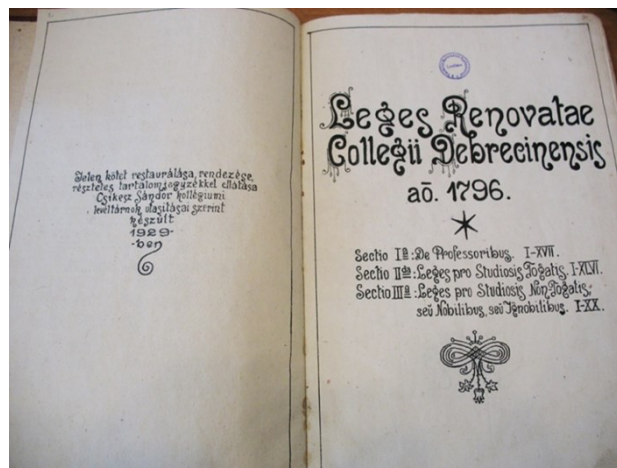 Jelen kötet restaurálása, rendezése,
részletes tartalomjegyzékkel ellátása
Csikesz Sándor kollégiumi
levéltárnok utasításai szerint
készült
1929-
-ben
Leges Renovatae
Collegii Debrecinensis
aō. 1796.
Sectio Iª: De Professoribus. I-XVII.
Sectio IIda: Leges pro Studiosis Togatis. I-XLVI.
Sectio IIIª: Leges pro Studiosis Non Togatis,
seū Nobilibus, seū Ignobilibus. I-XX.